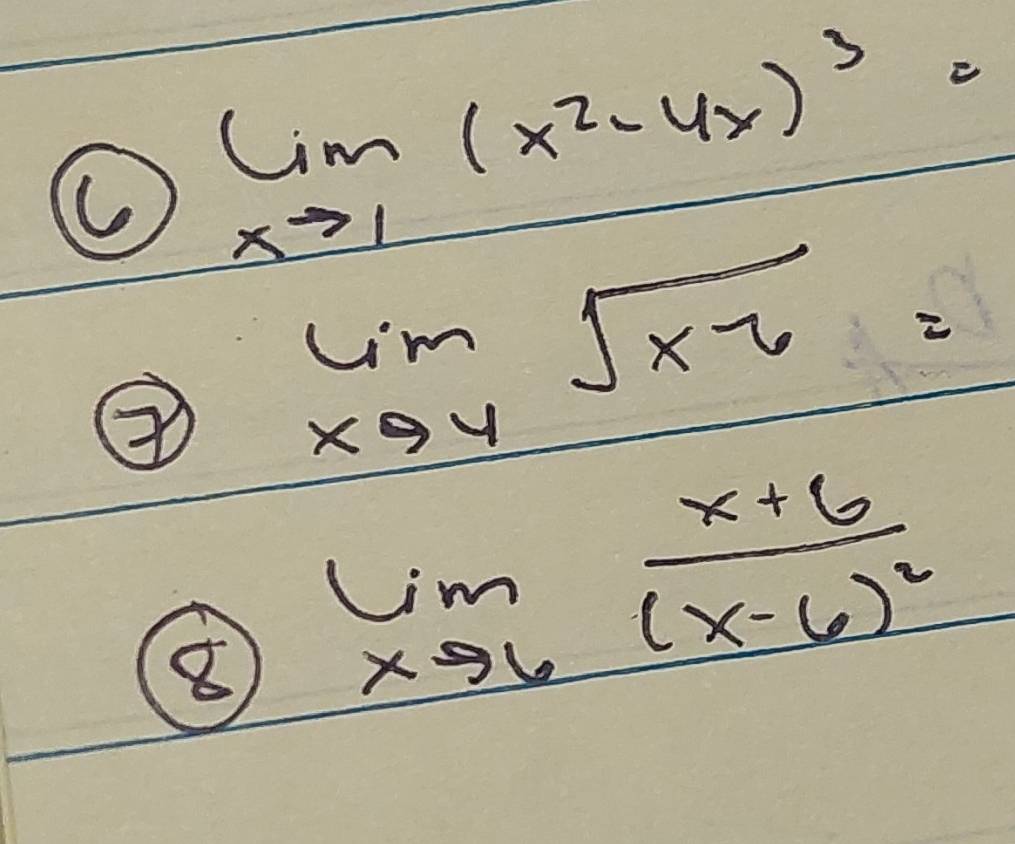 ⑥ lim (x²-4x)³ =
x→1
⑦ lim √x-6 =
x→4
⑧ lim x+6
x→6 (x-6)²